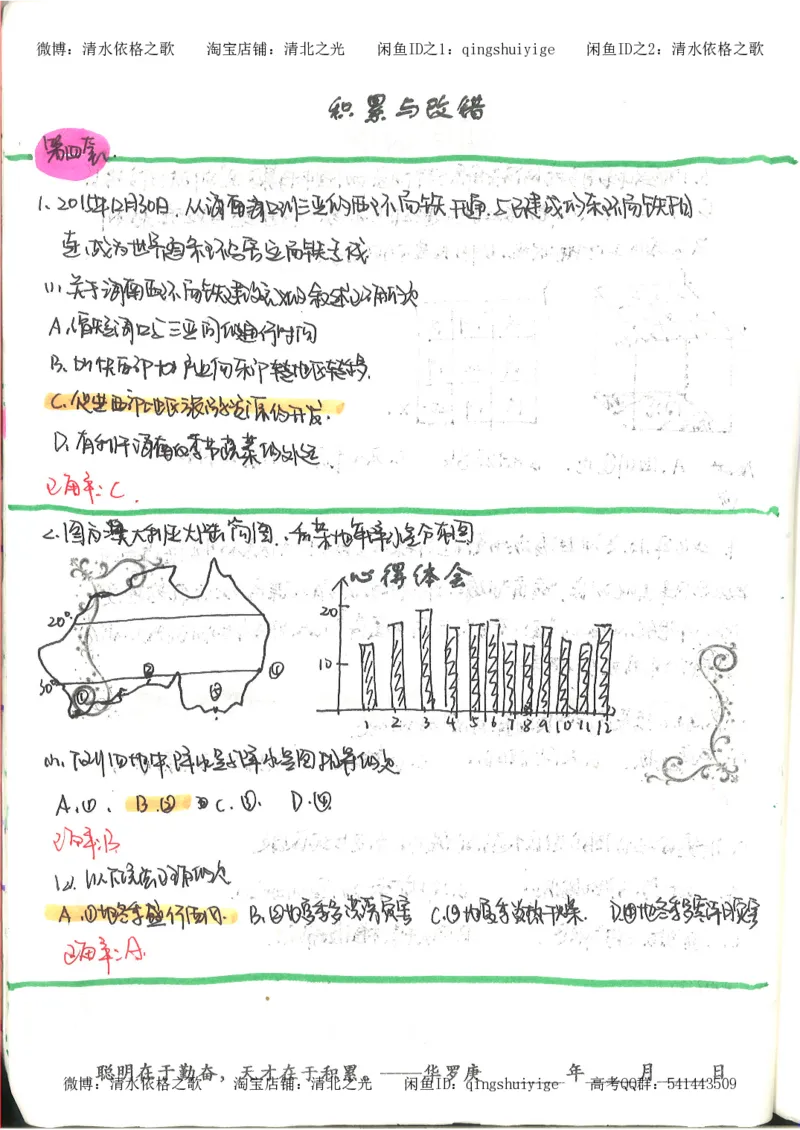 微博：清水依格之歌 淘宝店铺：清北之光 闲鱼ID之1：qingshuiyige 闲鱼ID之2：清水依格之歌
积累与改错
第四套
1、2015年12月30日，从海南海口到三亚的西环高铁开通，与已建成的东环高铁相
连，成为世界首条环岛高铁
(1)、关于海南西环高铁建设意义的叙述正确的是
A、缩短海口与三亚间的通行时间
B、加快西部产业向东部地区转移
C、促进西部地区旅游资源的开发
D、有利于海南反季节蔬菜的外运
正确率：C
2、图为澳大利亚大陆简图、和某地年降水量分布图
心得体会
20°
30°
① ② ③ ④
20
10
1 2 3 4 5 6 7 8 9 10 11 12
(1)、下列四地中降水量与降水量图相符的是
A、① B、② C、③ D、④
正确率：B
(2)、以下说法正确的是
A、①地冬季盛行西风 B、②地夏季多洪涝灾害 C、③地夏季炎热干燥 D、④地冬季多寒潮灾害
正确率：A
聪明在于勤奋，天才在于积累。——华罗庚 年 月 日
微博：清水依格之歌 淘宝店铺：清北之光 闲鱼ID：qingshuiyige 高考QQ群：541443509